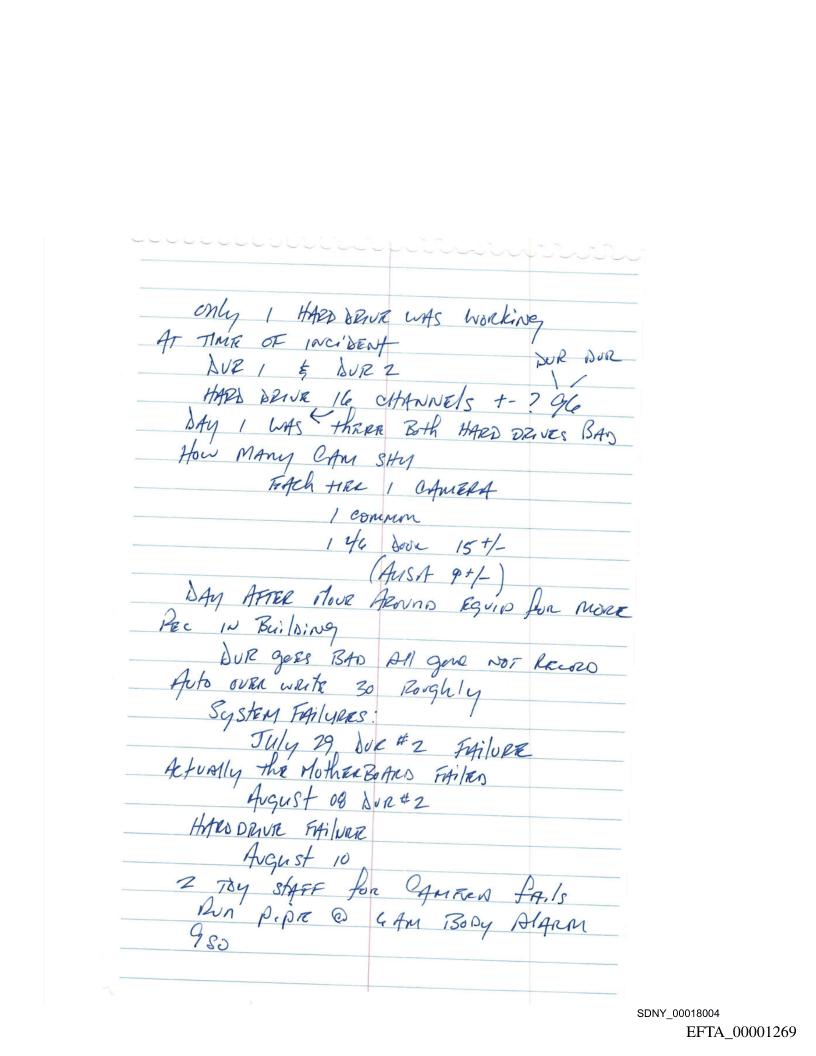 only 1 HARD DRIVE WAS working
AT TIME OF INCiDENT
DVR DVR
DVR 1 & DVR 2
HARD DRIVE 16 CHANNEls +- ? 96
DAY 1 WAS there Both HARD DRIVES BAD
How MANy CAM SHU
EAch tier 1 CAMERA
1 common
1 Door 15 +/-
(AUSA 9+/-)
DAY AFTER Move AROUND EQUIP for MORE
REC iN BuilDiNg
DVR goes BAD All gone NOT RECORD
Auto OVER WRITE 30 Roughly
SySTEM FAilURES:
July 29 DVR #2 FAilURE
ActuAlly the MotherBoARD FAilED
August 08 DVR #2
HARD DRIVE FAilURE
August 10
2 TDY STAFF for CAMERA fAils
Run @ 6 AM BoDy AlARM
SDNY_00018004
EFTA_00001269